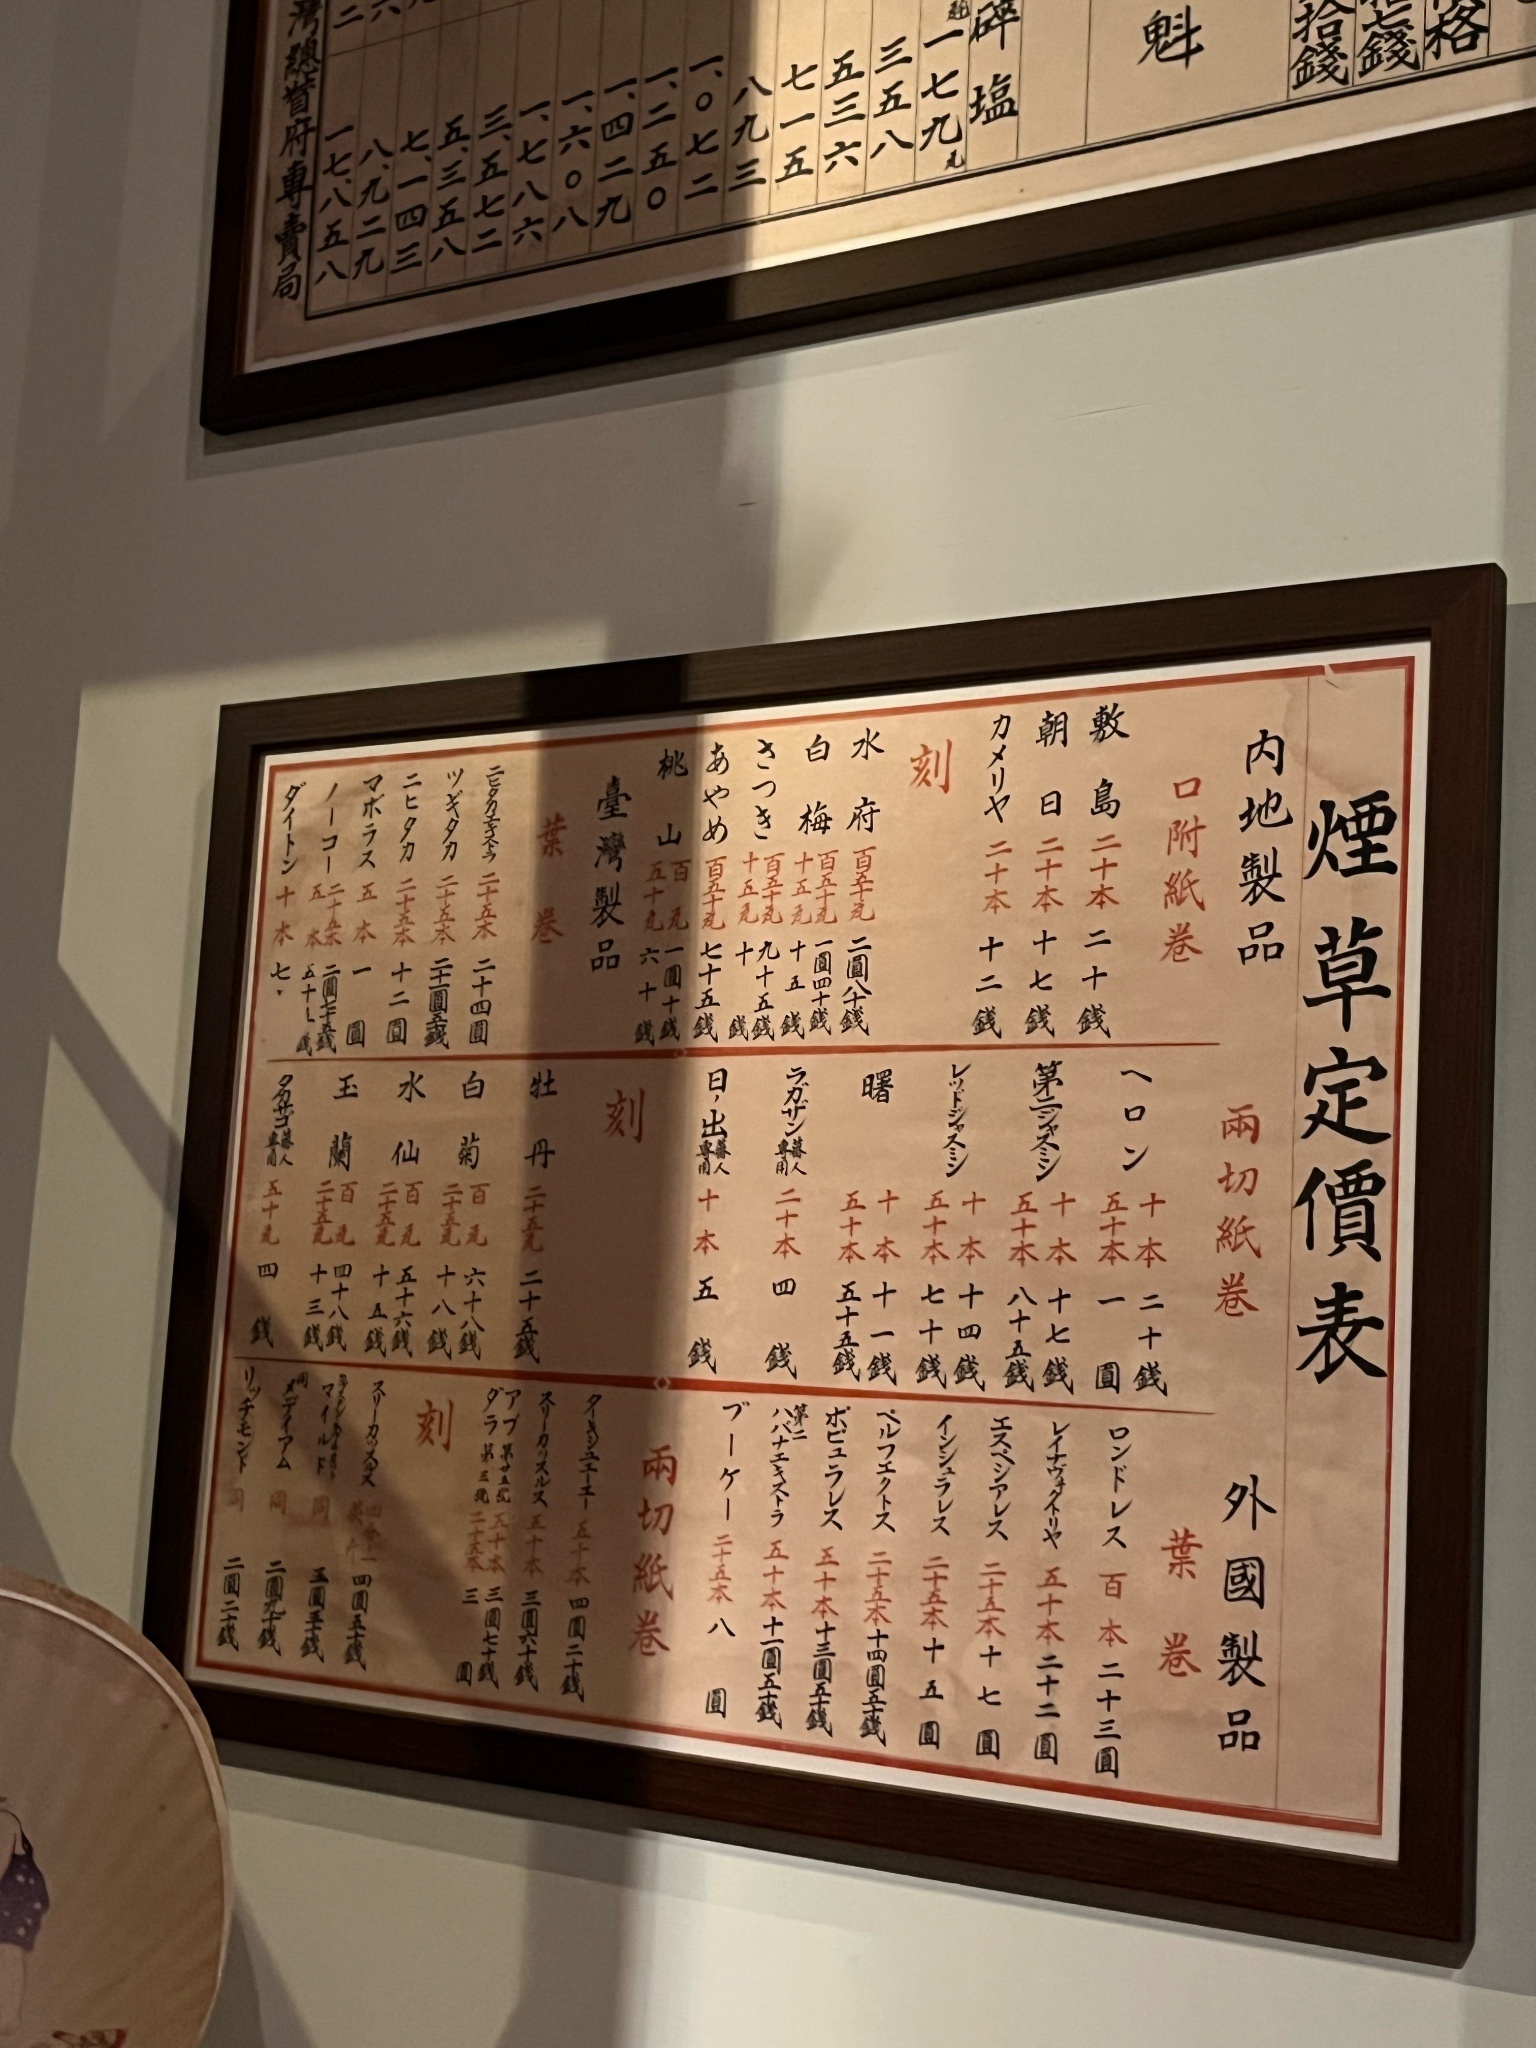 碎塩
一七九瓦
三五八
五三六
七一五
八九三
一、〇七二
一、二五〇
一、四二九
一、六〇八
一、七八六
三、五七二
五、三五八
七、一四三
八、九二九
一七、八五八
灣總督府專賣局
魁
拾錢
格
煙草定價表
内地製品
口附紙卷
敷島 二十本 二十錢
朝日 二十本 十七錢
カメリヤ 二十本 十二錢
刻
水府 百五十瓦 二圓八十錢
白梅 百五十瓦 一圓四十錢
十五瓦 十五錢
さつき 百五十瓦 九十五錢
十五瓦 十錢
あやめ 百五十瓦 七十五錢
桃山 百瓦 一圓十錢
五十瓦 六十錢
臺灣製品
葉卷
ニヒタカエキストラ 二十五本 二十四圓
ツギタカ 二十五本 二十一圓五十錢
ニヒタカ 二十五本 十二圓
マボラス 五本 一圓
ノーコー 二十五本 二圓七十五錢
五本
ダイトン 十本
兩切紙卷
ヘロン 十本 二十錢
五十本 一圓
第二ジャスミン 十本 十七錢
五十本 八十五錢
レッドジャスミン 十本 十四錢
五十本 七十錢
曙 十本 十一錢
五十本 五十五錢
ラガザン蕃人專用 二十本 四錢
日ノ出蕃人專用 十本 五錢
刻
牡丹 二十五瓦 二十五錢
白菊 百瓦 六十八錢
二十五瓦 十八錢
水仙 百瓦 五十六錢
二十五瓦 十五錢
玉蘭 百瓦 四十八錢
二十五瓦 十三錢
タカサゴ蕃人專用 五十瓦 四錢
外國製品
葉卷
ロンドレス 百本 二十三圓
レイナヴィクトリヤ 五十本 二十二圓
エスペシアレス 二十五本 十七圓
インシュラレス 二十五本 十五圓
ペルフエクトス 二十五本 十四圓五十錢
ポピュラレス 五十本 十三圓五十錢
第二ハバナエキストラ 五十本 十一圓五十錢
ブーケー 二十五本 八圓
兩切紙卷
ターキシュエーエー 五十本 四圓二十錢
スリーカッスルス 五十本 三圓六十錢
アブダラ 第廿五號 五十本 三圓七十錢
第三號 二十五本 三圓
刻
スリーカッスルス 四分一 四圓五十錢
マイルド 同 三圓五十錢
同メディアム 同 二圓九十錢
リッチモンド 同 二圓二十錢